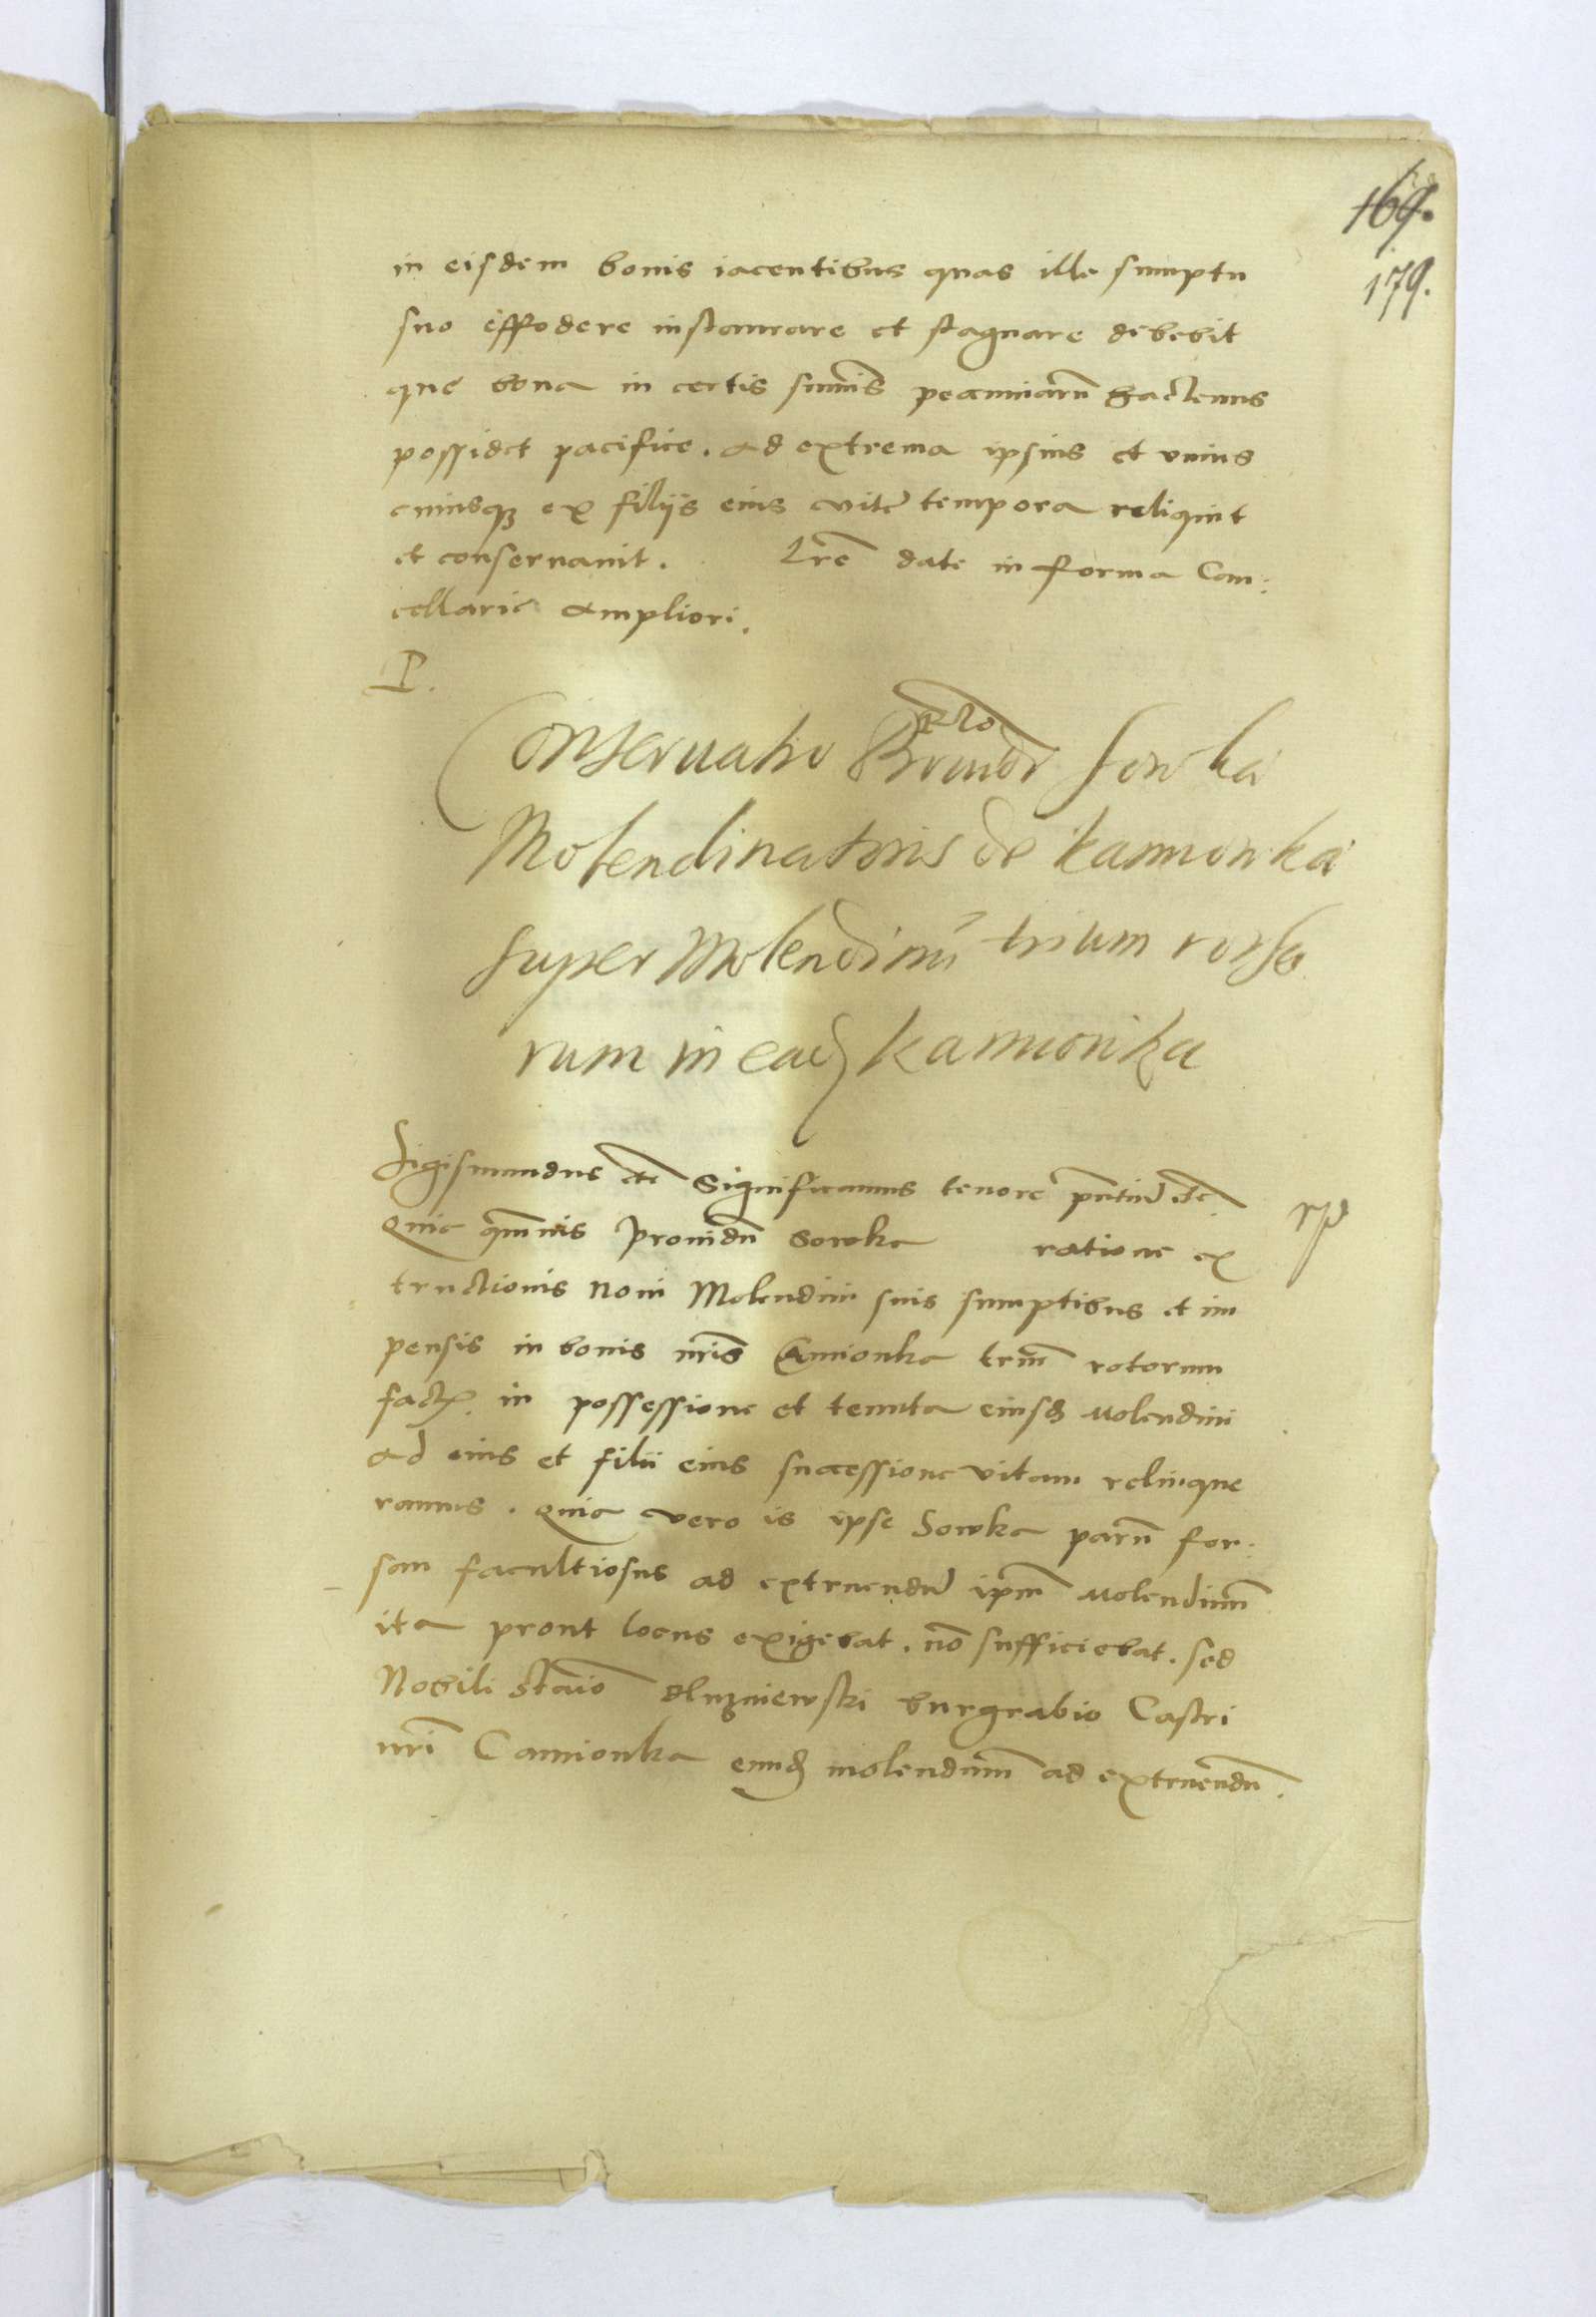 169.
179.
in eisdem bonis iacentibus quas ille sumptu
suo effodere instaurare et stagnare debebit
que bona in certis summis pecuniarũ hactenus
possidet pacifice. ad extrema ipsius et unius
cuiusqꝫ ex filijs eius vite tempora reliquit
et conservavit. Lrẽ date in forma Can:
cellarie ampliori.
P.
Conservatio Sowka
Molendinatoris de kamionka
super Molendinũ trium rotha
rum in eadꝫ kamionka
Sigismundus etc Significamus tenore pntiũ etc.
Quia qm̃vis Providũ Sowka ratione ex
tructionis novi Molendini suis sumptibus et im
pensis in bonis nris̃ Camionka triũ rotorum
facti in possessione et tenuta eiusdꝫ Molendini
ad eius et filii eius successione vitam relinque
ramus. Quia vero is ipse Sowka parũ for:
san facultiosus ad extruendũ ipm̃ Molendinũ
ita prout locus exigebat. nõ sufficiebat. sed
Nobili Stanio Dluzniewski burgrabio Castri
nrĩ Camionka eundꝫ molendinũ ad extruendũ.